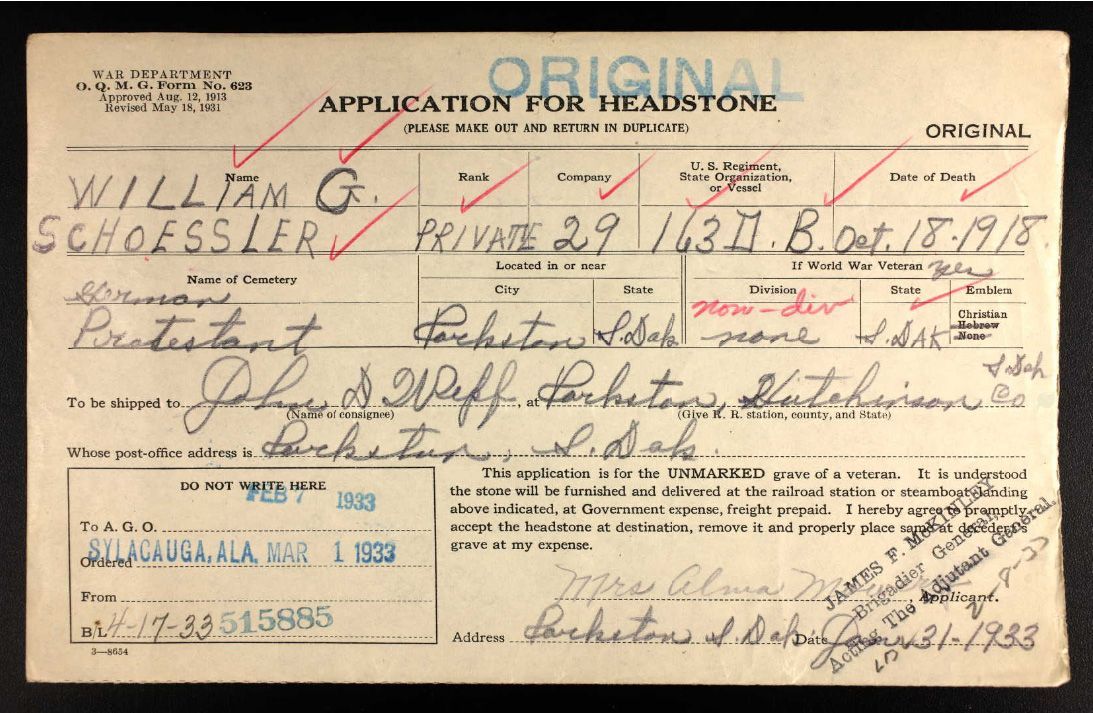 ORIGINAL
WAR DEPARTMENT
O. Q. M. G. Form No. 623
Approved Aug. 12, 1913
Revised May 18, 1931
APPLICATION FOR HEADSTONE
(PLEASE MAKE OUT AND RETURN IN DUPLICATE)
ORIGINAL
Name Rank Company U. S. Regiment, State Organization, or Vessel Date of Death
WILLIAM G.
SCHOESSLER PRIVATE 29 163 D. B. Oct. 18-1918.
Name of Cemetery Located in or near If World War Veteran yes
City State Division State Emblem
German non-div Christian
Protestant Parkston S. Dak none S. DAK Hebrew
None
S Dak
To be shipped to John D Weff, at Parkston, Hutchinson Co
(Name of consignee) (Give R. R. station, county, and State)
Whose post-office address is Parkston, S. Dak.
DO NOT WRITE HERE
FEB 7 1933
To A. G. O.
SYLACAUGA, ALA. MAR 1 1933
Ordered
From
B/L 4-17-33 515885
3—8654
This application is for the UNMARKED grave of a veteran. It is understood
the stone will be furnished and delivered at the railroad station or steamboat landing
above indicated, at Government expense, freight prepaid. I hereby agree to promptly
accept the headstone at destination, remove it and properly place same at decedent's
grave at my expense.
Mrs Alma
, Applicant.
Address Parkston S. Dak Date Jan 31-1933
JAMES F. McKINLEY
Brigadier General,
Acting The Adjutant General.